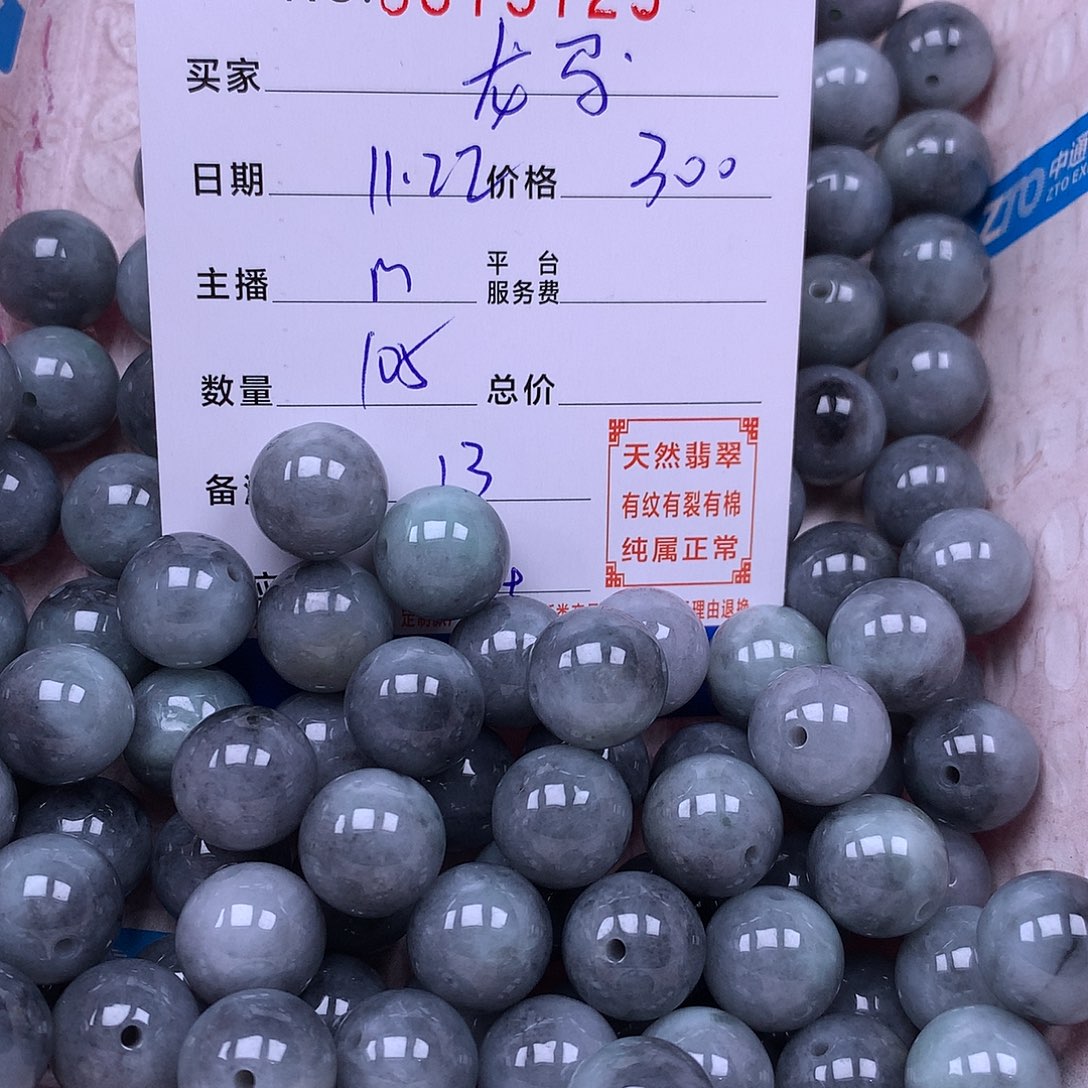 买家 龙马
日期 11.22 价格 300
主播 m 平台服务费
数量 105 总价
备 13
天然翡翠
有纹有裂有棉
纯属正常
理由退换
ZTO 中通
ZTO EX